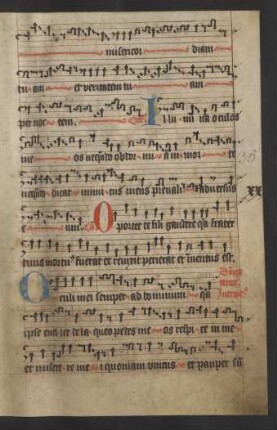 misericor diam
tu am et veritatem tu am
per noc tem. Illu mi na oculos
me os nequando obdor mi am in mor te
nequando dicat inimi cus meus prevalui adversus
e um Co Oportet te fili gaudere qa frater
tuus mortuus fuerat et revixit perierat et inventus est.
Oculi mei semper ad dominum qa
ipse evellet de la queo pedes me os respi ce in me
et misere re mei quoniam unicus et pauper sū
XX